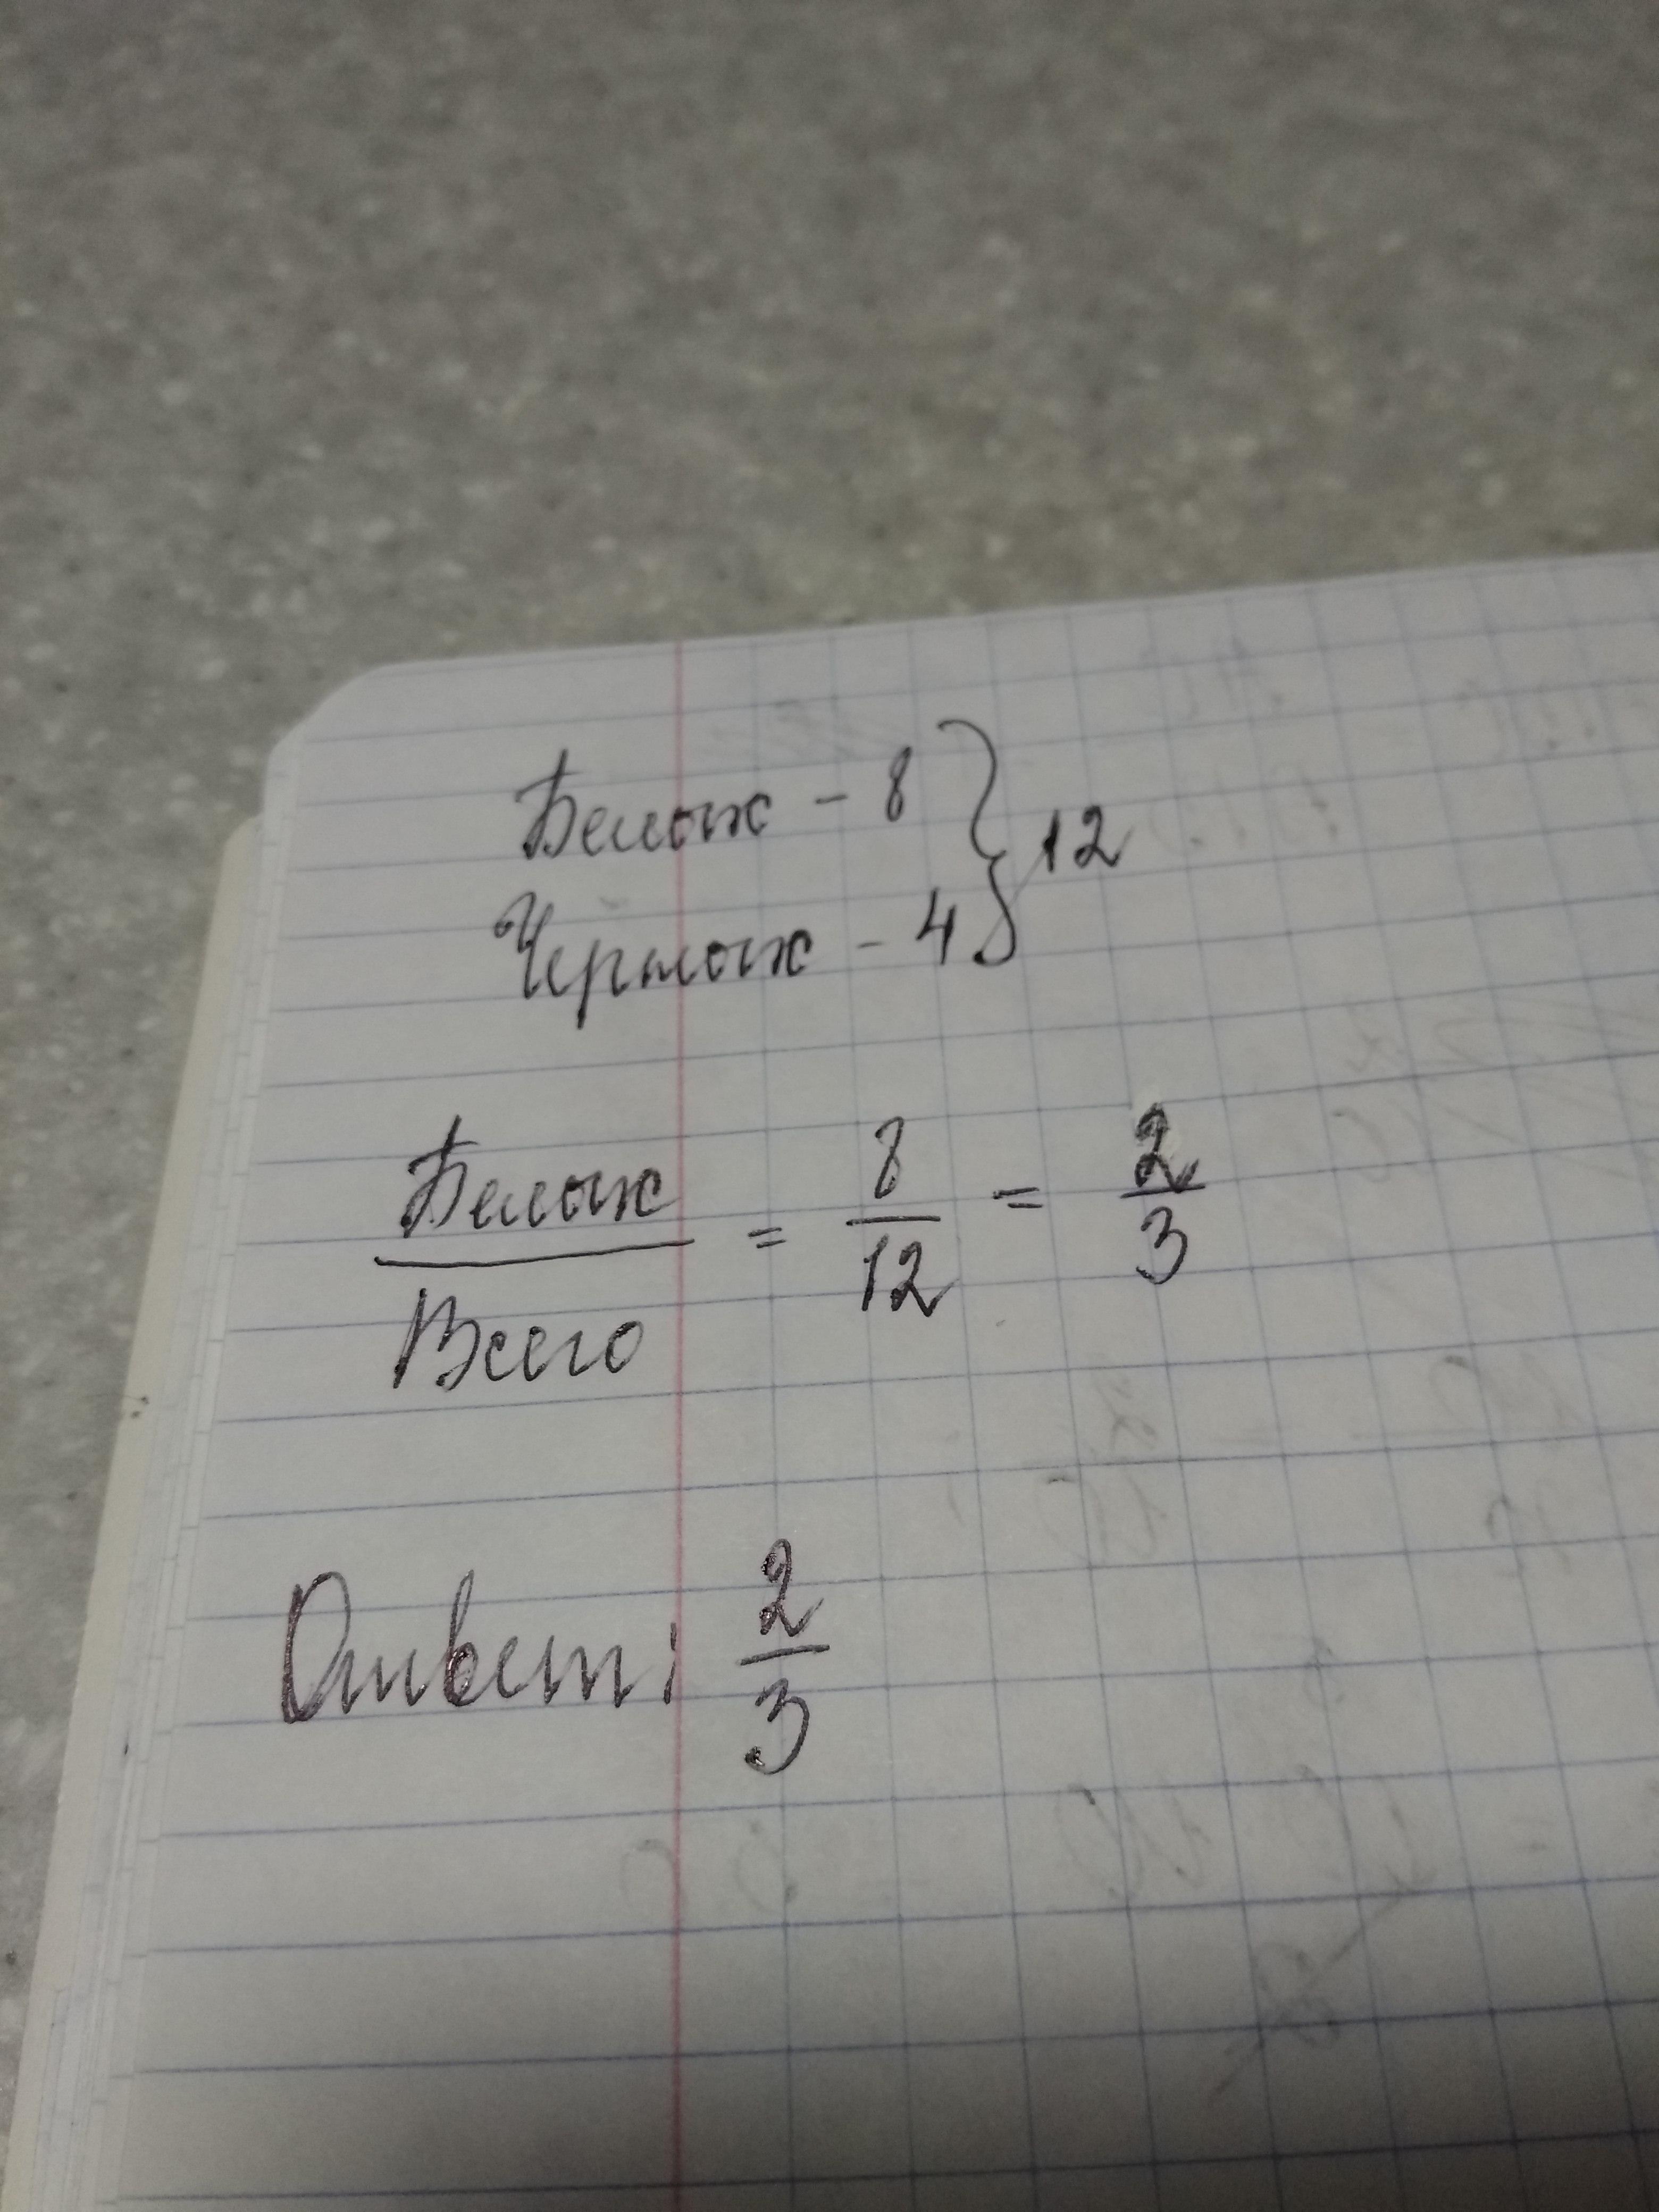 Белых - 8 } 12
Чёрных - 4
Белых / Всего = 8/12 = 2/3
Ответ: 2/3